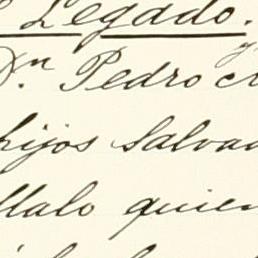 Legado.
Dn Pedro
hijos Salvad
Malo quien